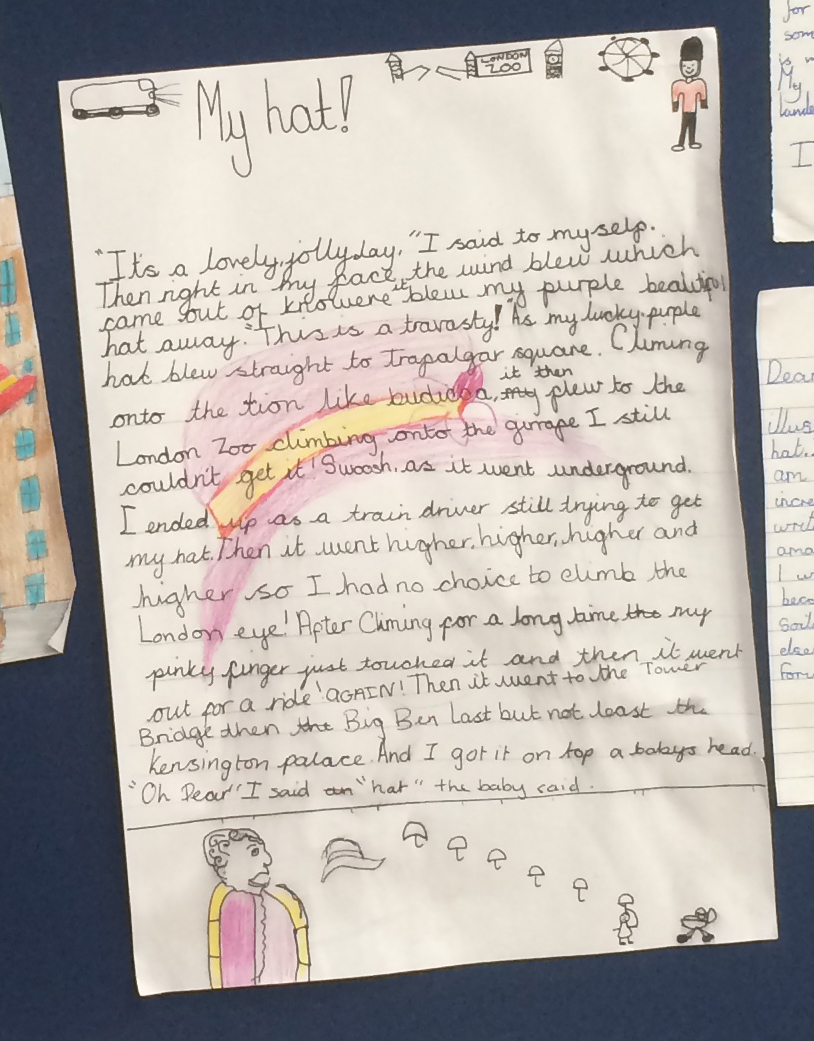 LONDON
ZOO
My hat!
"It's a lovely, jolly day," I said to my self.
Then right in my face the wind blew which
came out of knowere it blew my purple beautiful
hat away. "This is a travasty!" As my lucky purple
hat blew straight to Trafalgar square. Climing
onto the tion like budicca, my it then flew to the
London Zoo climbing onto the giraffe I still
couldn't get it! Swoosh, as it went underground.
I ended up as a train driver still trying to get
my hat. Then it went higher, higher, higher and
higher so I had no choice to climb the
London eye! After Climing for a long time the my
pinky finger just touched it and then it went
out for a ride AGAIN! Then it went to the Tower
Bridge then the Big Ben Last but not least the
Kensington palace. And I got it on top a babys head.
"Oh Dear" I said an "hat" the baby said.
for
som
is
My
I
Dear
illus
hat.
am
incre
writ
ama
I w
beco
else